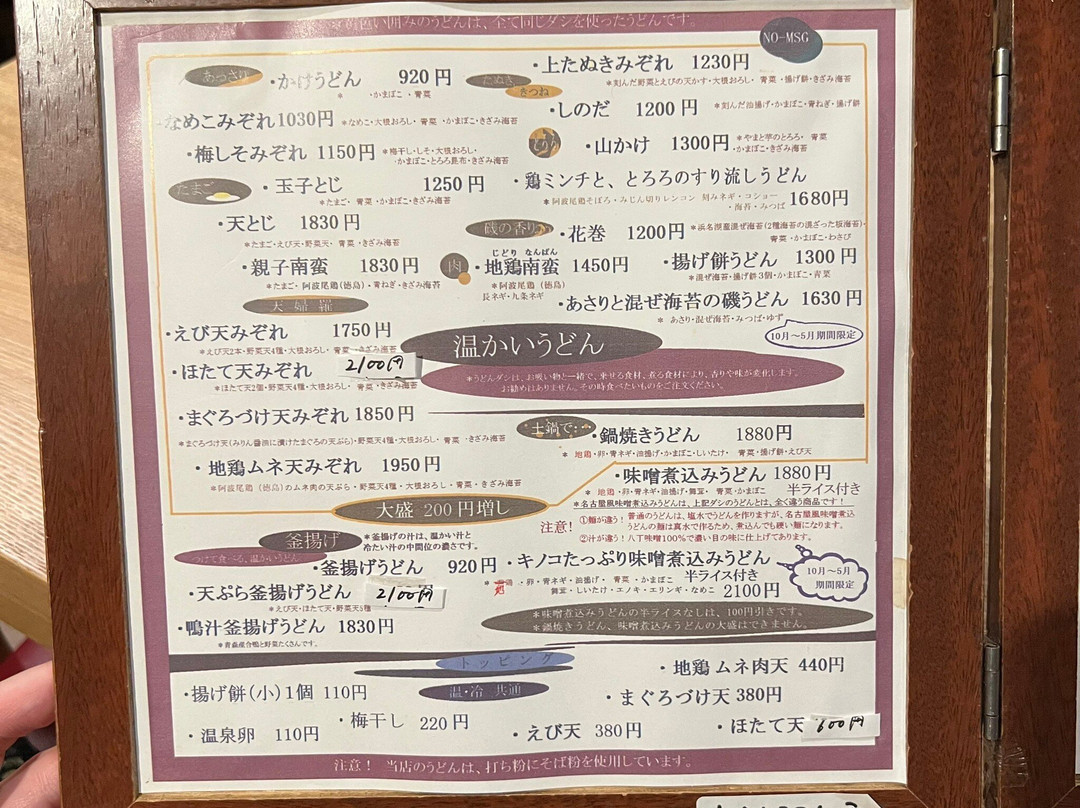 黄色い囲みのうどんは、全て同じダシを使ったうどんです。
NO-MSG
あっさり
・かけうどん 920円
*・かまぼこ・青菜
なめこみぞれ 1030円
*なめこ・大根おろし・青菜・かまぼこ・きざみ海苔
・梅しそみぞれ 1150円
*梅干し・しそ・大根おろし・
・かまぼこ・とろろ昆布・きざみ海苔
たまご
・玉子とじ 1250円
*たまご・青菜・かまぼこ・きざみ海苔
・天とじ 1830円
*たまご・えび天・野菜天・青菜・きざみ海苔
・親子南蛮 1830円
*たまご・阿波尾鶏(徳島)・青ねぎ・きざみ海苔
天婦羅
・えび天みぞれ 1750円
*えび天2本・野菜天4種・大根おろし・青菜・きざみ海苔
・ほたて天みぞれ 2100円
*ほたて天2個・野菜天4種・大根おろし・青菜・きざみ海苔
・まぐろづけ天みぞれ 1850円
*まぐろづけ天(みりん醤油に漬けたまぐろの天ぷら)・野菜天4種・大根おろし・青菜・きざみ海苔
・地鶏ムネ天みぞれ 1950円
*阿波尾鶏(徳島)のムネ肉の天ぷら・野菜天4種・大根おろし・青菜・きざみ海苔
たぬき
きつね
・上たぬきみぞれ 1230円
*刻んだ野菜とえびの天かす・大根おろし・青菜・揚げ餅・きざみ海苔
・しのだ 1200円
*刻んだ油揚げ・かまぼこ・青ねぎ・揚げ餅
とろり
・山かけ 1300円
*やまと芋のとろろ・青菜
・かまぼこ・きざみ海苔
・鶏ミンチと、とろろのすり流しうどん
*阿波尾鶏そぼろ・みじん切りレンコン 刻みネギ・コショー
・海苔・みつば
1680円
磯の香り
・花巻 1200円
*浜名湖産混ぜ海苔(2種海苔の混ざった板海苔)・
青菜・かまぼこ・わさび
肉
じどり なんばん
・地鶏南蛮 1450円
*阿波尾鶏(徳島)
長ネギ・九条ネギ
・揚げ餅うどん 1300円
*混ぜ海苔・揚げ餅3個・かまぼこ・青菜
・あさりと混ぜ海苔の磯うどん 1630円
*あさり・混ぜ海苔・みつば・ゆず
10月〜5月期間限定
温かいうどん
*うどんダシは、お吸い物と一緒で、乗せる食材、煮る食材により、香りや味が変化します。
お勧めはありません。その時食べたいものをご注文ください。
土鍋で…
・鍋焼きうどん 1880円
*地鶏・卵・青ネギ・油揚げ・かまぼこ・しいたけ・青菜・揚げ餅・えび天
・味噌煮込みうどん 1880円
半ライス付き
*地鶏・卵・青ネギ・油揚げ・舞茸・青菜・かまぼこ
*名古屋風味噌煮込みうどんは、上記ダシのうどんとは、全く違う商品です!
注意!
①麺が違う! 普通のうどんは、塩水でうどんを作りますが、名古屋風味噌煮込
うどんの麺は真水で作るため、煮込んでも硬い麺になります。
②汁が違う! 八丁味噌100%で濃い目の味に仕上げてあります。
大盛 200円増し
釜揚げ
つけて食べる、温かいうどん
*釜揚げの汁は、温かい汁と
冷たい汁の中間位の濃さです。
・釜揚げうどん 920円
・天ぷら釜揚げうどん 2100円
*えび天・ほたて天・野菜天5種
・鴨汁釜揚げうどん 1830円
*青森産合鴨と野菜たくさんです。
・キノコたっぷり味噌煮込みうどん
半ライス付き
*・卵・青ネギ・油揚げ・青菜・かまぼこ
舞茸・しいたけ・エノキ・エリンギ・なめこ
2100円
10月〜5月
期間限定
*味噌煮込みうどんの半ライスなしは、100円引きです。
*鍋焼きうどん、味噌煮込みうどんの大盛はできません。
トッピング
温・冷 共通
・揚げ餅(小)1個 110円
・温泉卵 110円
・梅干し 220円
・えび天 380円
・地鶏 ムネ肉天 440円
・まぐろづけ天 380円
・ほたて天 600円
注意! 当店のうどんは、打ち粉にそば粉を使用しています。